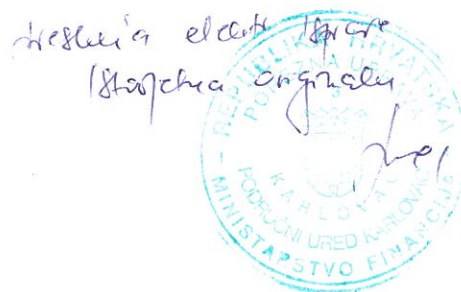 elektr isprave
istovjetna originalu
REPUBLIKA HRVATSKA
POREZNA UPRAVA
PODRUČNI URED KARLOVAC
KARLOVAC
MINISTARSTVO FINANCIJA